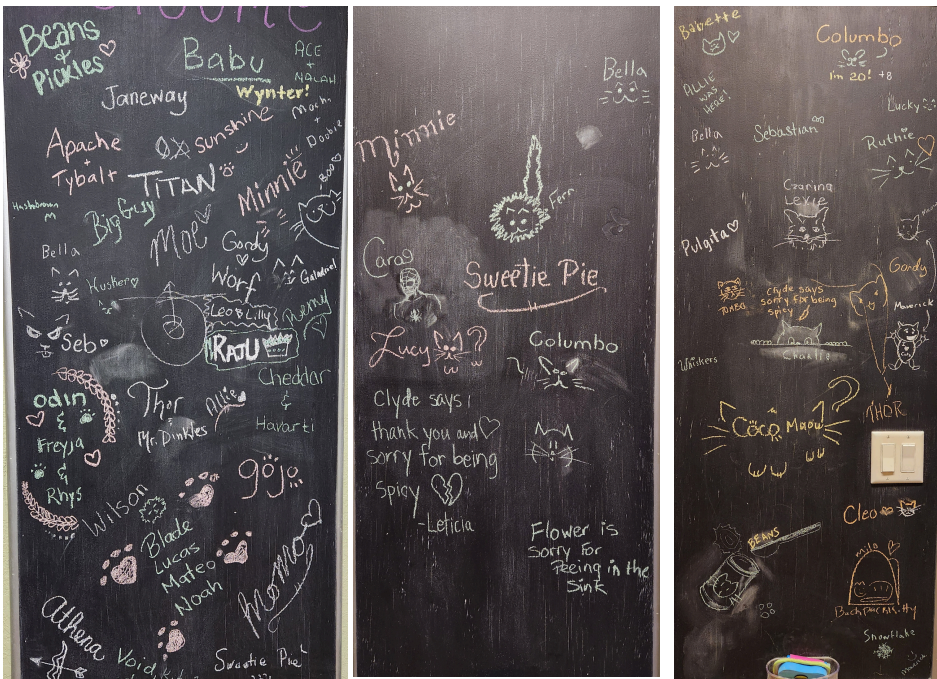 Beans
&
Pickles
Babu
ACE
+
NALAH
Wynter!
Janeway
Mach
+
Doobie
Apache
+
Tybalt
Sunshine
TITAN
Minnie
Boo
Big Guy
Moe
Gordy
Bella
Husker
Worf
Galadriel
Leo & Lilly
Remy
RAJU
Seb
Cheddar
&
Havarti
Thor
Alice
Mr. Dinkles
Odin
&
Freyja
&
Rhys
gojo
Wilson
Blade
Lucas
Mateo
Noah
Momo
Athena
Void
Sweetie Pie
Bella
Minnie
Fern
Sweetie Pie
Lucy
Columbo
Clyde says
thank you and
sorry for being
Spicy
-Leticia
Flower is
sorry for
Peeing in the
Sink
Babette
Columbo
I'm 20! +8
ALLIE
WAS
HERE!
Lucky
Bella
Sebastian
Ruthie
Czarina
Lexie
Pulgita
Gordy
Clyde says
sorry for being
spicy
Maverick
Charlie
Whiskers
THOR
Coco Maow
Cleo
BEANS
Milo
Backpack Kitty
Snowflake
Maverick